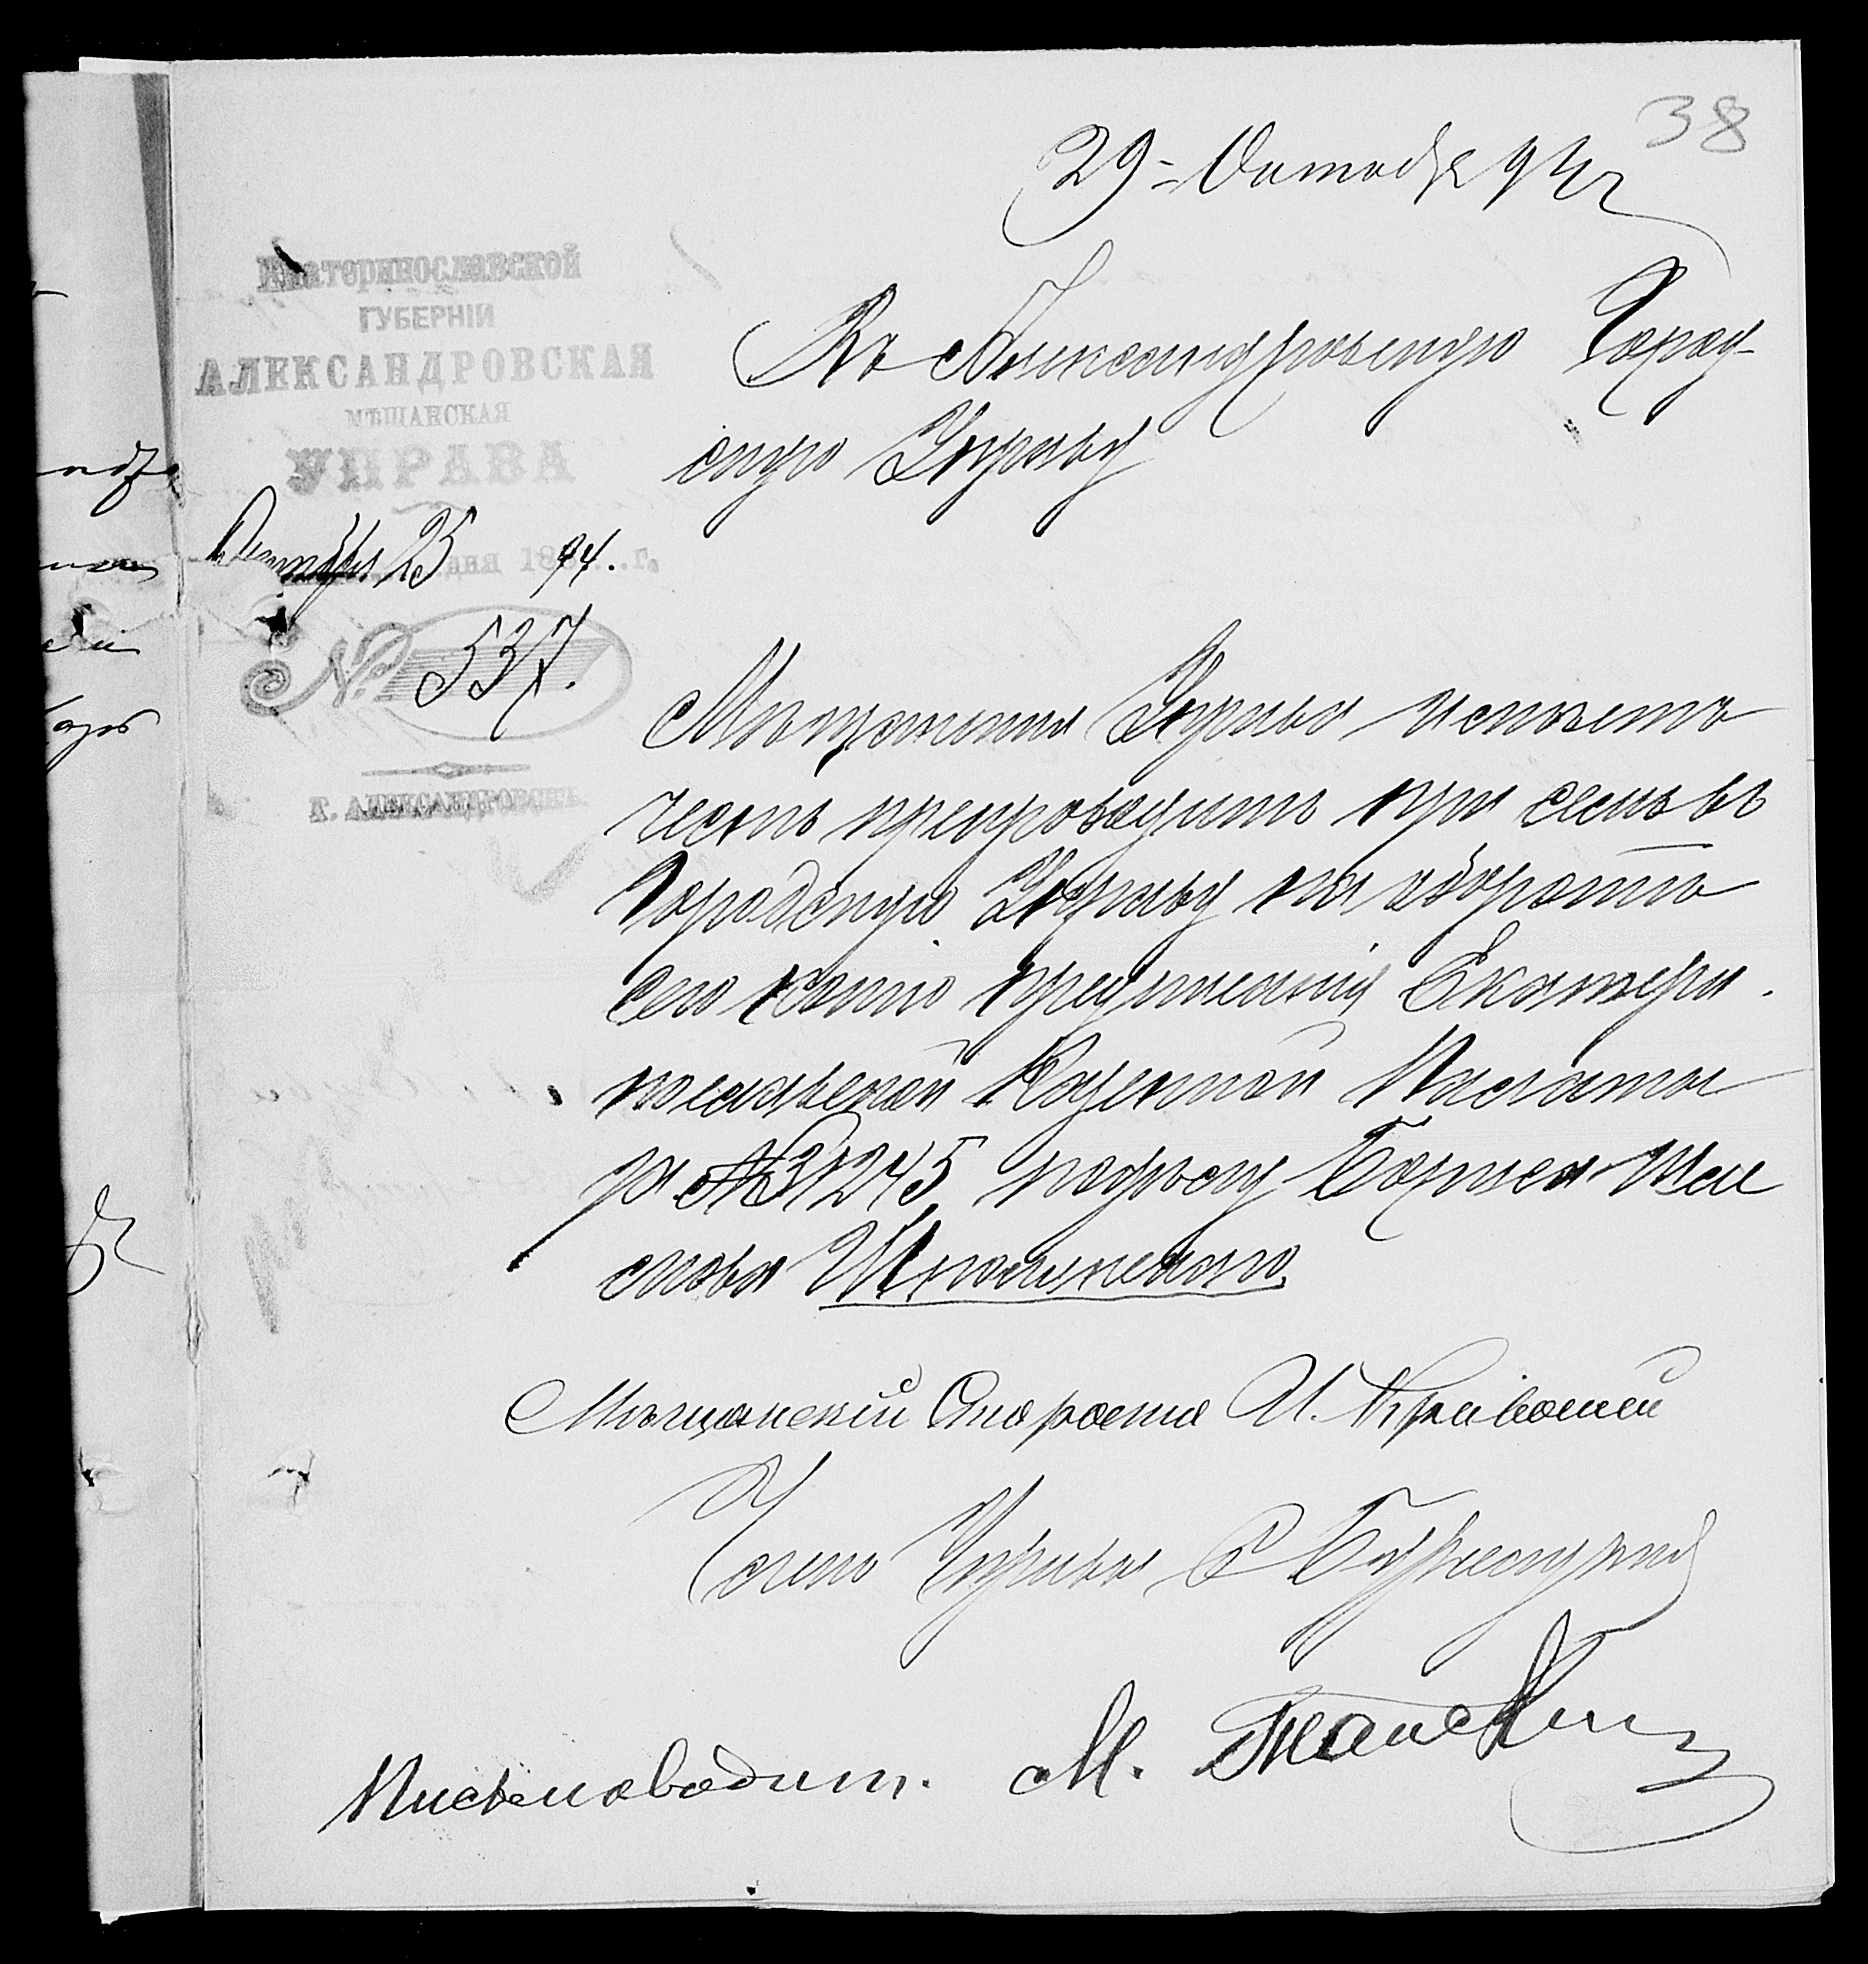 38
29 = Октабр 94 г
Екатеринославской
ГУБЕРНІИ
АЛЕКСАНДРОВСКАЯ
МѢЩАНСКАЯ
УПРАВА
Октября 25 дня 1894. г.
№ 537.
Г. АЛЕКСАНДРОВСКЪ.
Въ Александровскую Город-
скую Управу
Мѣщанская Управа имѣетъ
честь препроводить при семъ въ
Городскую Управу на оборотѣ
сего копію предписанія Екатери-
нославской Казенной Палаты
за № 31245 по
сына
Мѣщанскій Староста И.
Членъ Управы
Письмоводит. М.